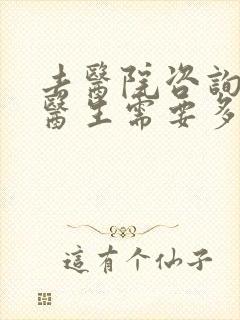 去醫院咨詢
醫生需要多
這有个仙子